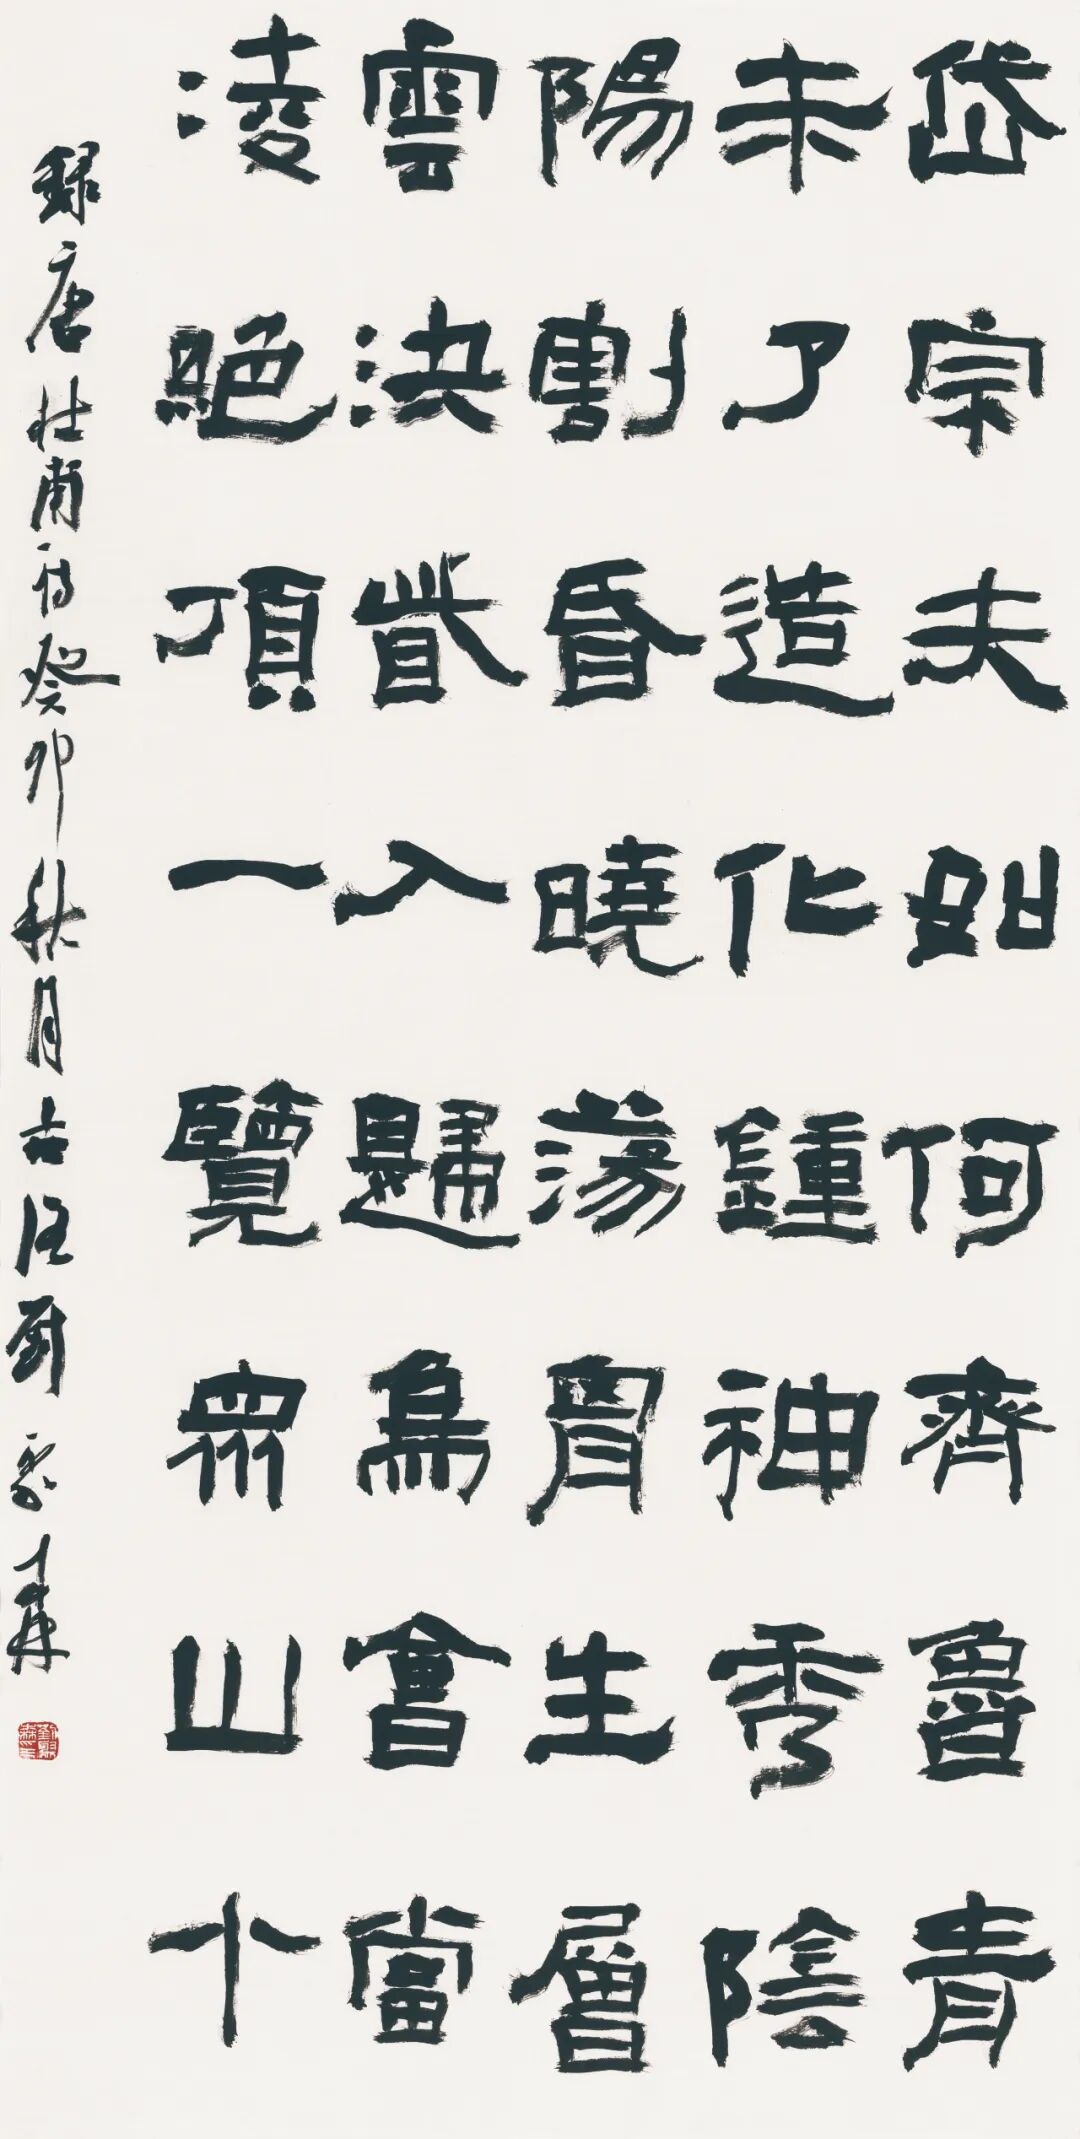 岱宗夫如何齊魯青
未了造化鍾神秀陰
陽割昏曉蕩胷生層
雲決眥入歸鳥會當
凌絕頂一覽眾山小
錄唐杜甫詩癸卯秋月古劉森